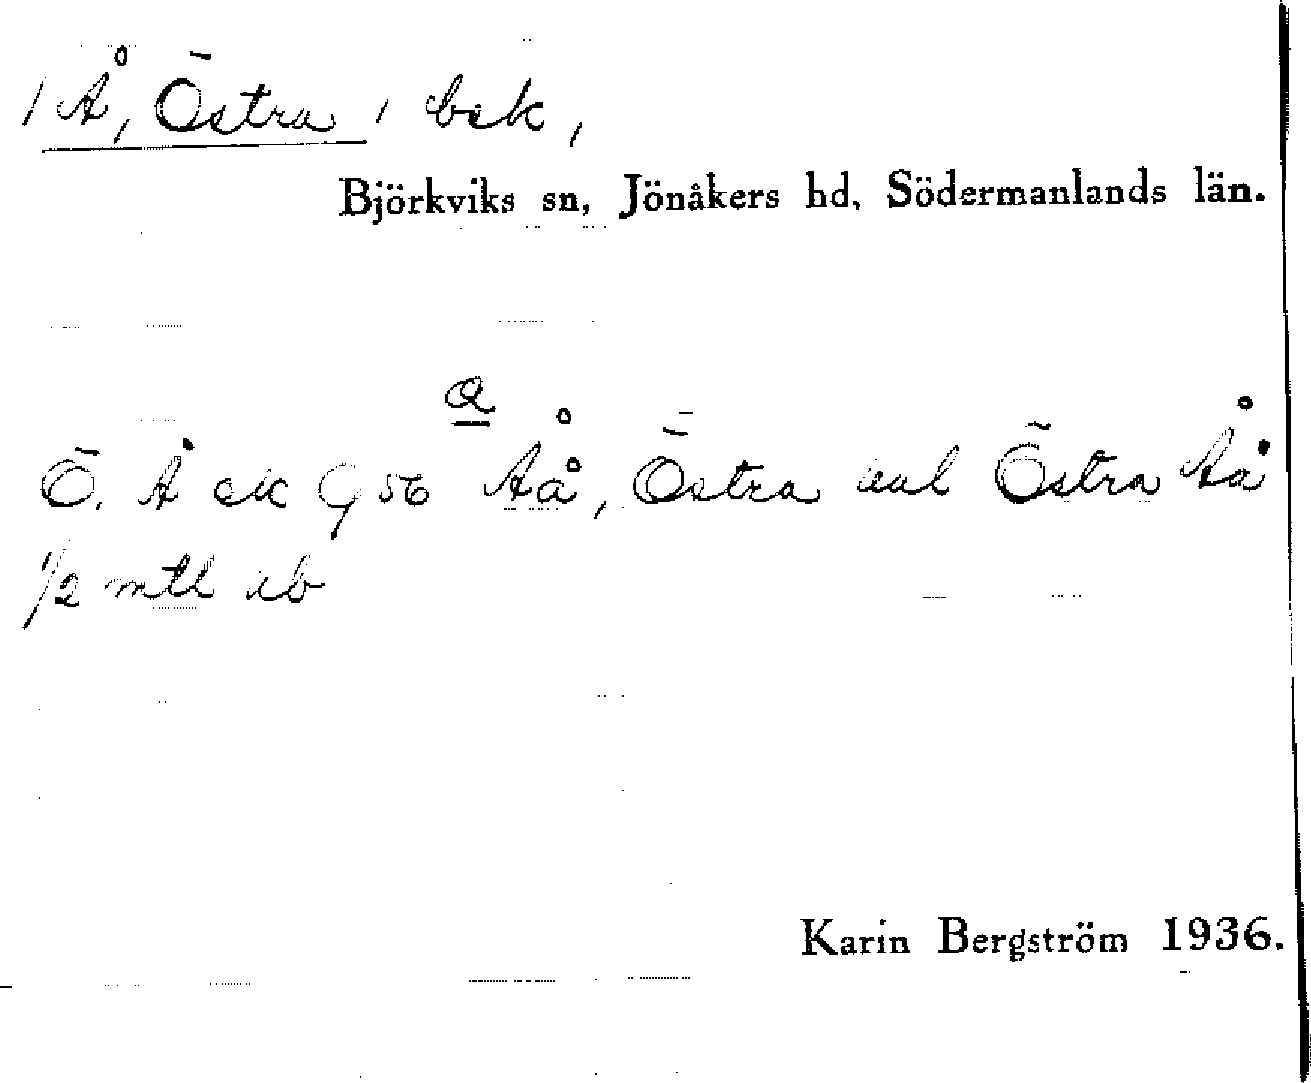 / Å, Östra / bsk,
Björkviks sn, Jönåkers hd, Södermanlands län.
a
Ö. Å ek G 56 Åå, Östra Östra Åå
1/2 mtl ib
Karin Bergström 1936.